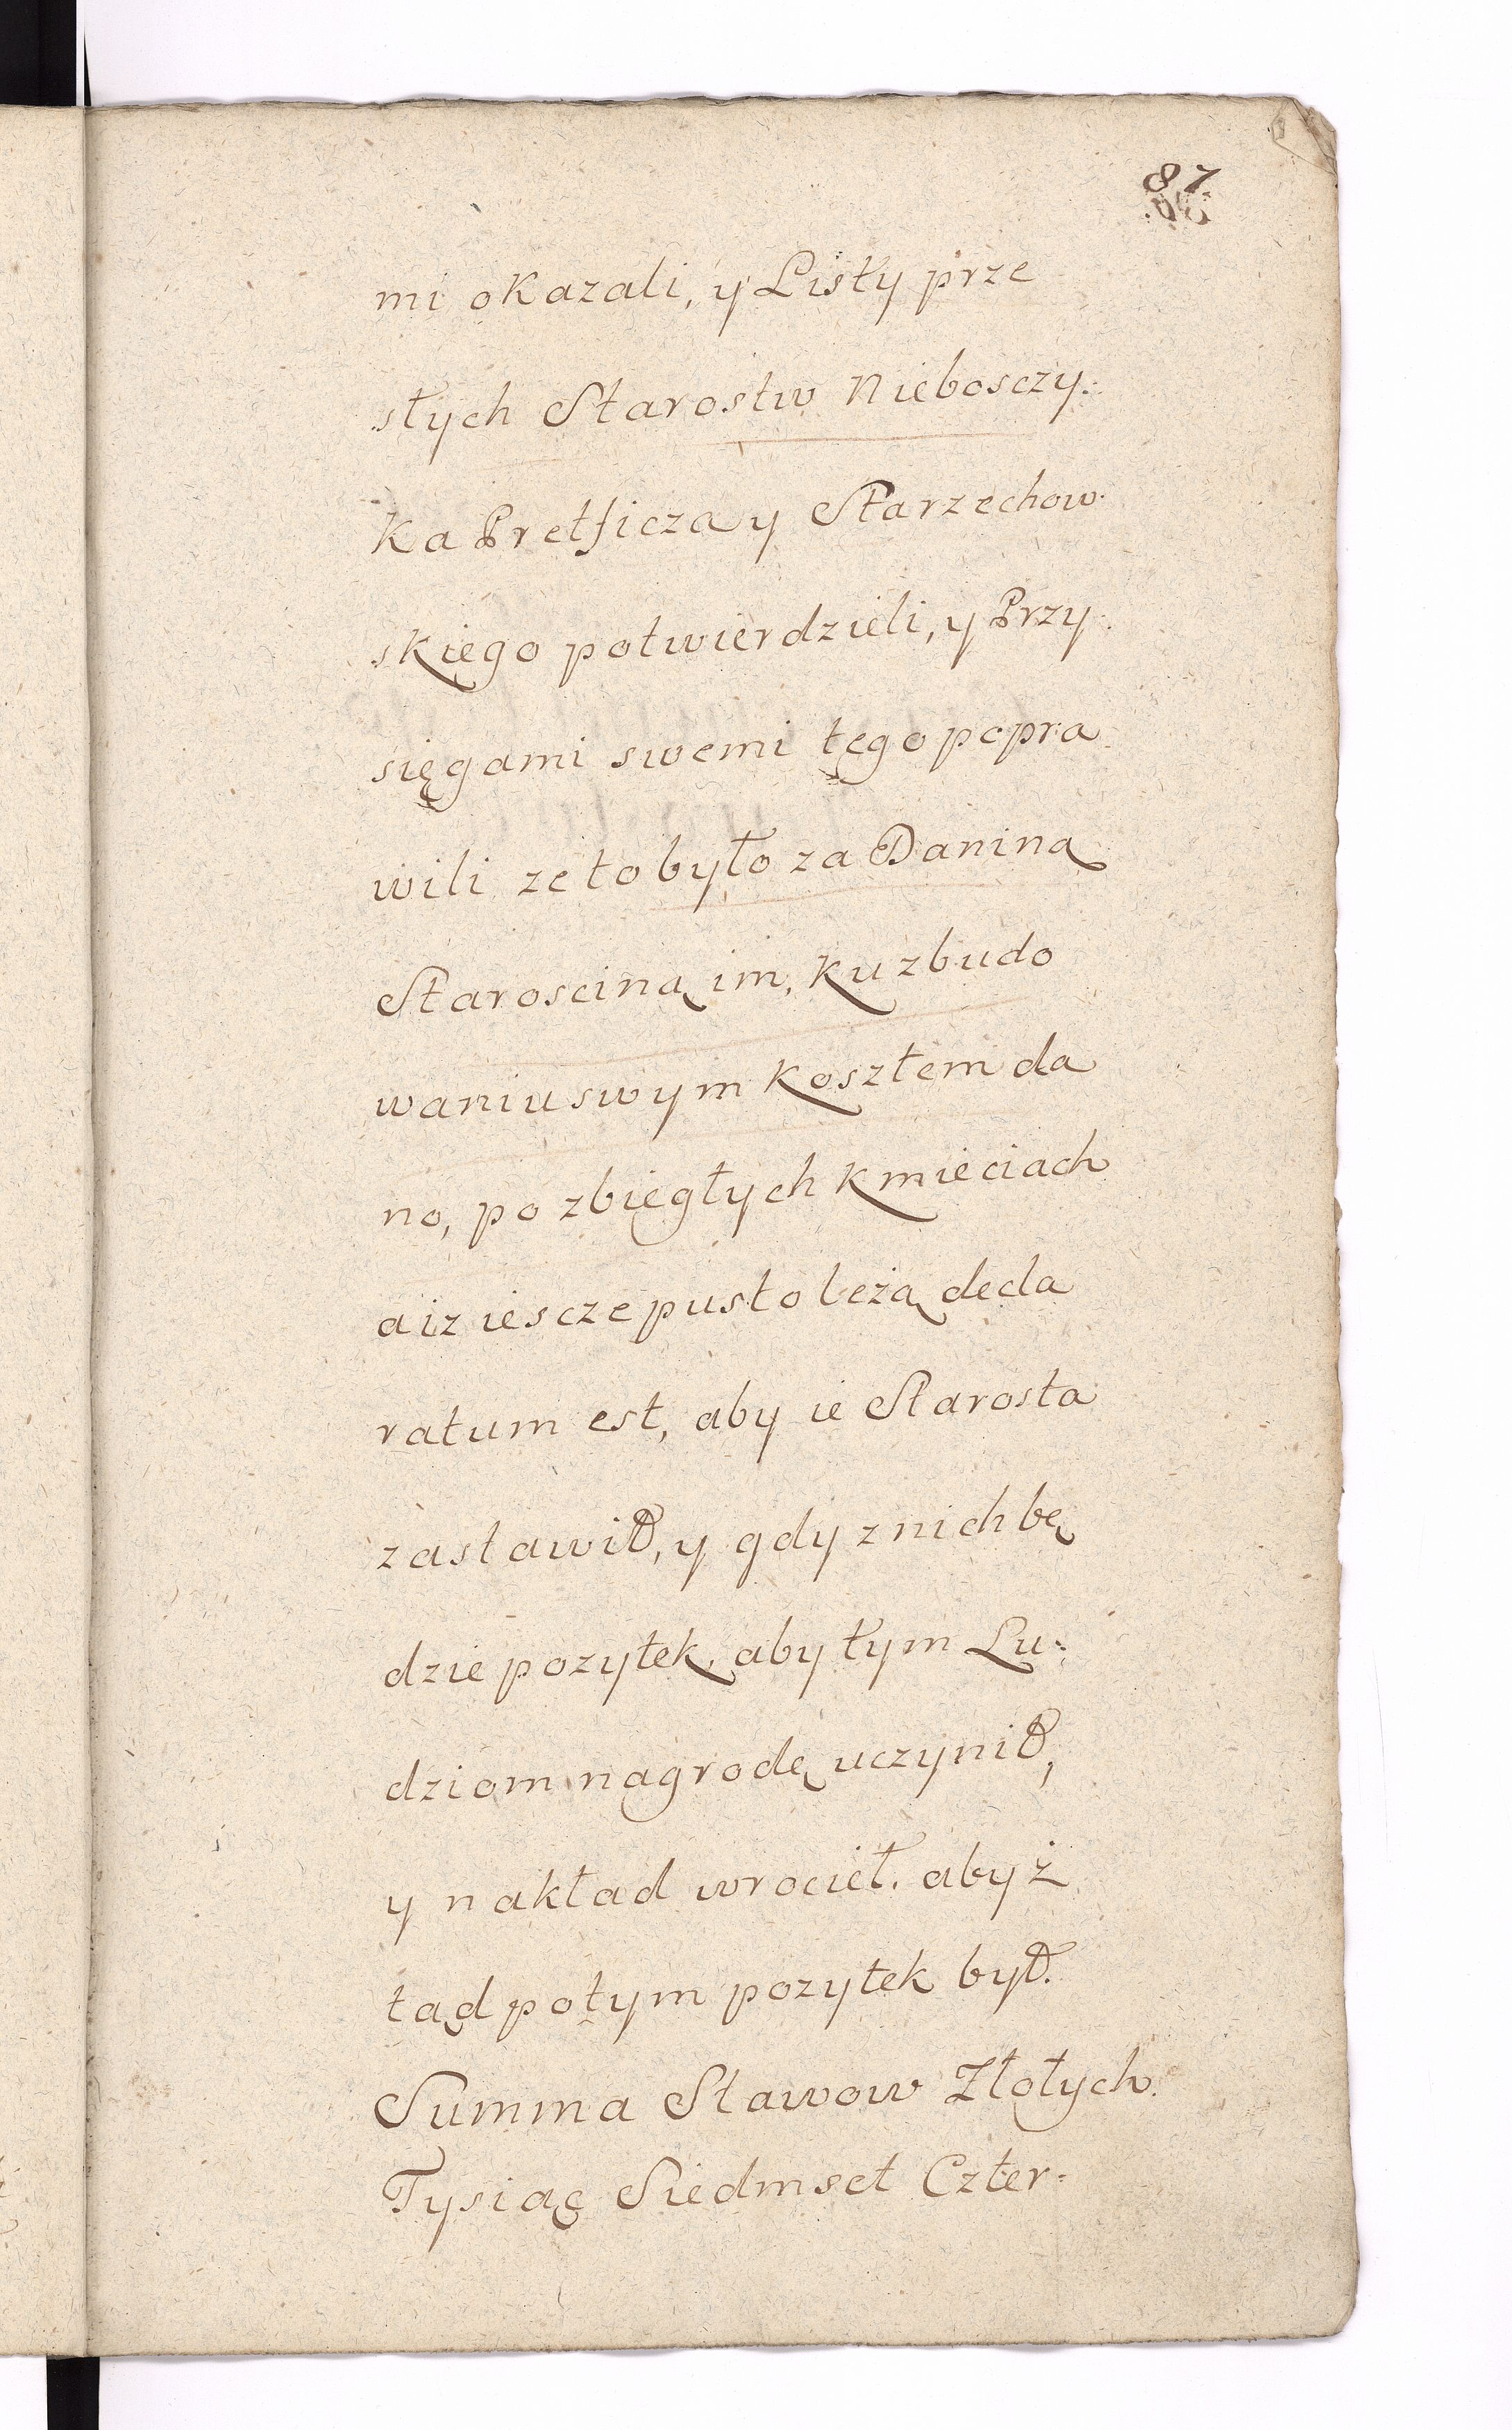 87
mi okazali, y Listy prze
słych Starostw Niebosczy:
ka Pretficza y Starzechow
skiego potwierdzieli, y Przy
sięgami swemi tego popra
wili ze to było za Daniną
Starosciną im, ku zbudo
waniu swym kosztem da
no, po zbiegłych kmieciach
a iz iescze pusto leżą decla
ratum est, aby ie Starosta
zastawił, y gdy z nich bę
dzie pozytek, aby tym Lu:
dziom nagrodę uczynił,
y nakład wrocieł. aby ż
tąd potym pozytek był.
Summa Stawow Złotych
Tysiąc Siedmset Czter: